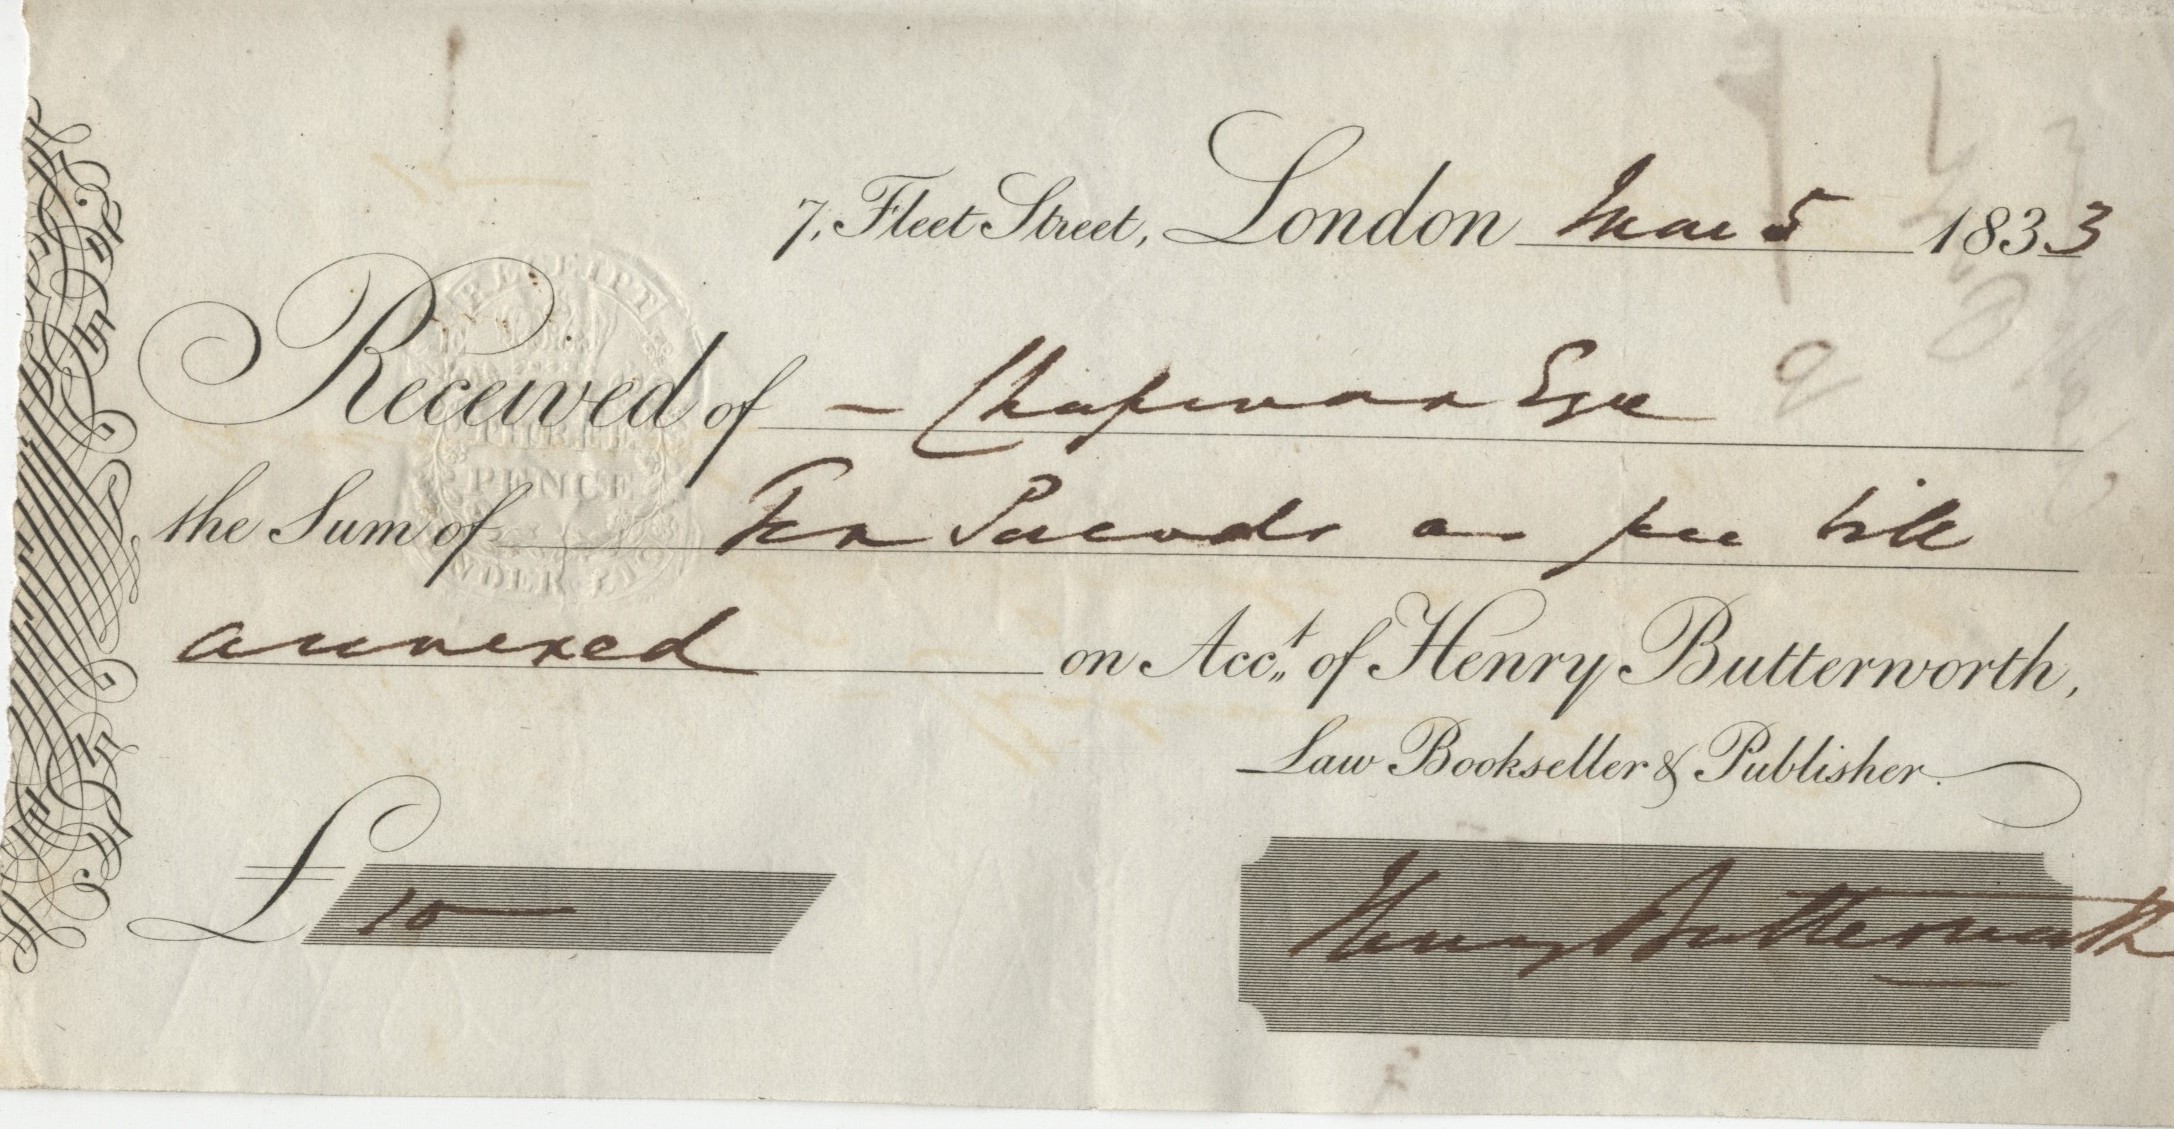 7, Fleet Street, London Mar 5 1833
Received of — Chapman Esqre
the Sum of Ten Pounds as per bill
annexed on Acct. of Henry Butterworth,
Law Bookseller & Publisher.
£ 10 —
Henry Butterworth
RECEIPT
THREE
PENCE